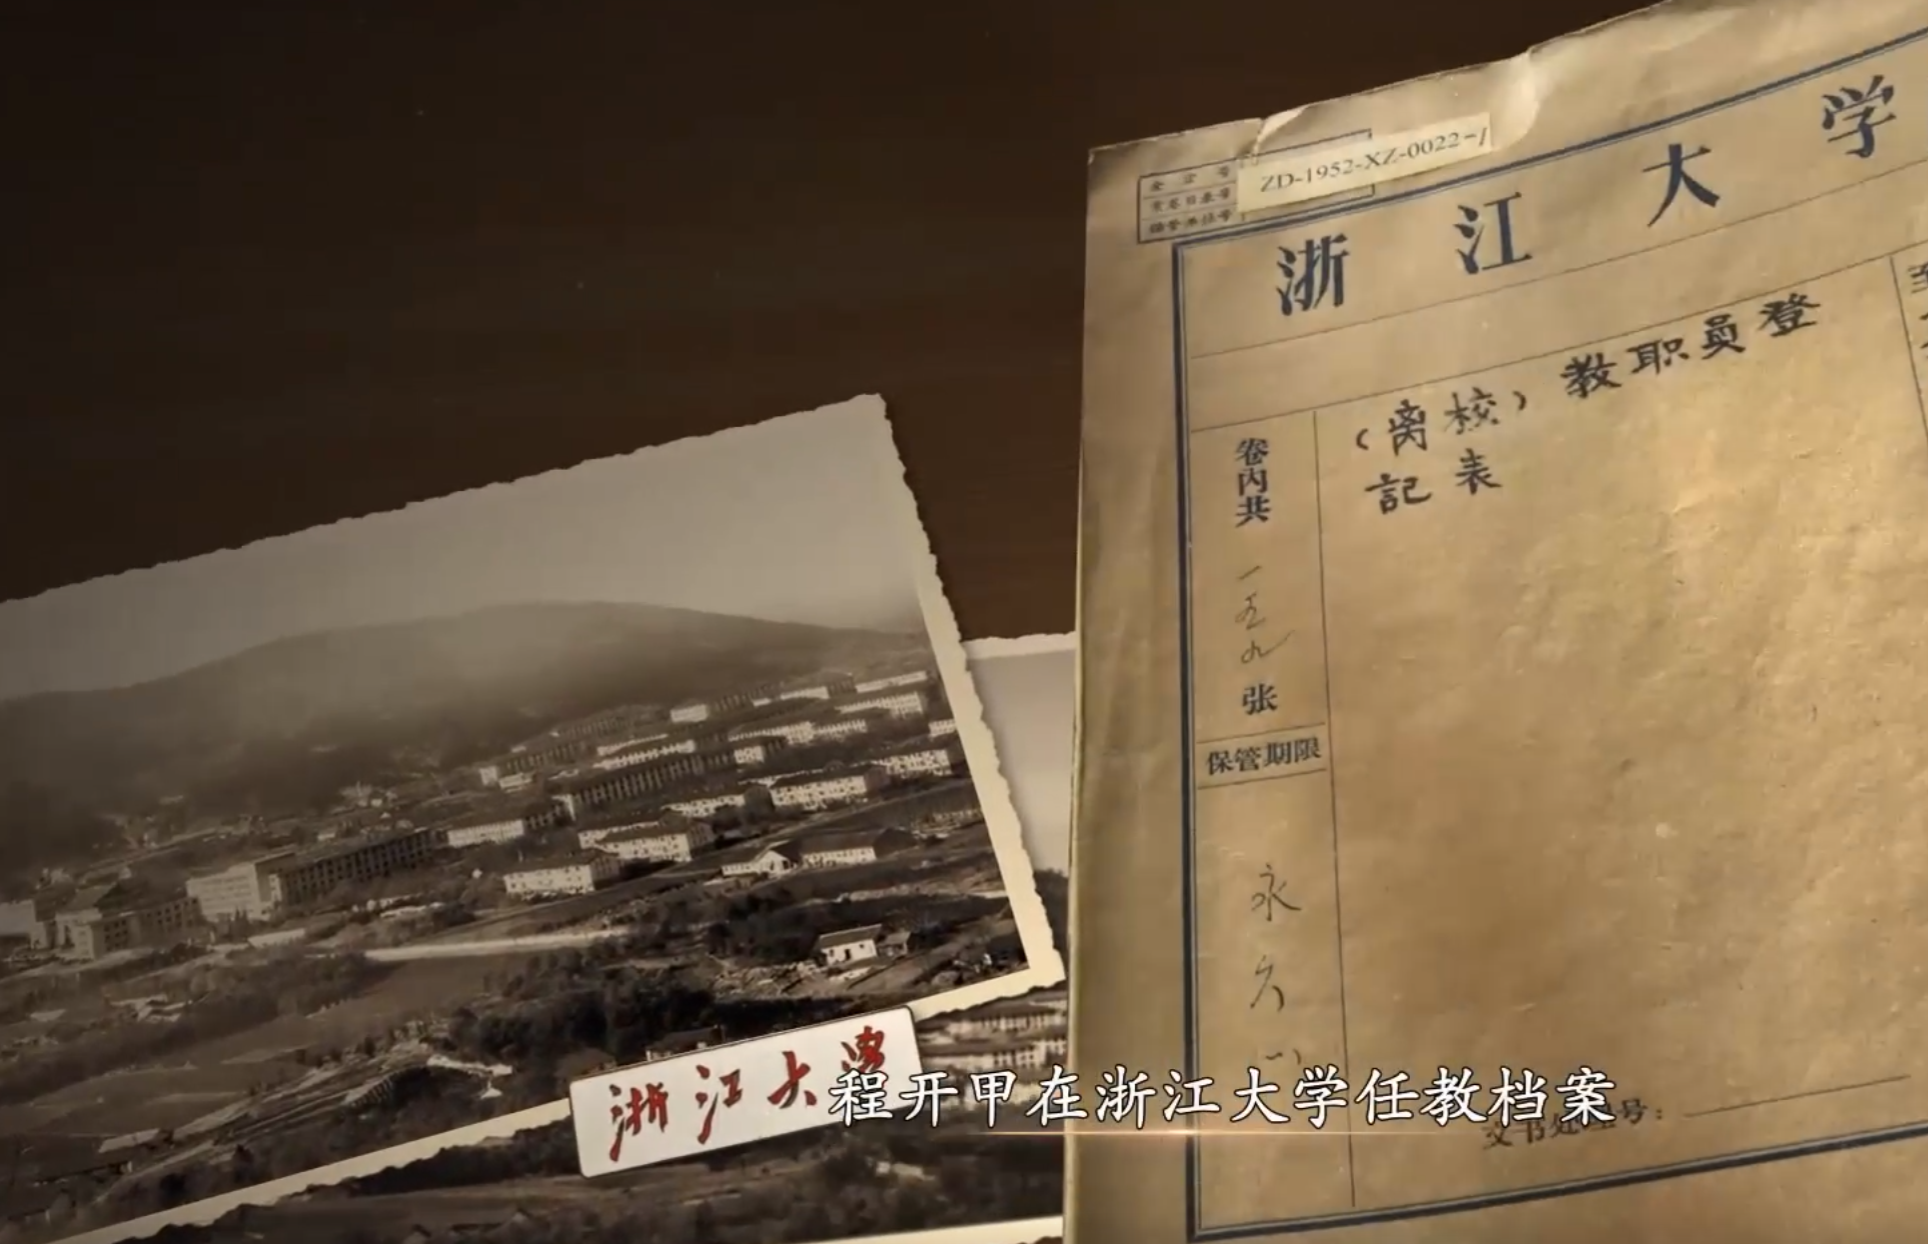 ZD-1952-XZ-0022-1
浙江大学
(离校)教职员登
記表
卷内共
一五九
张
保管期限
永久
浙江大
程开甲在浙江大学任教档案
号: